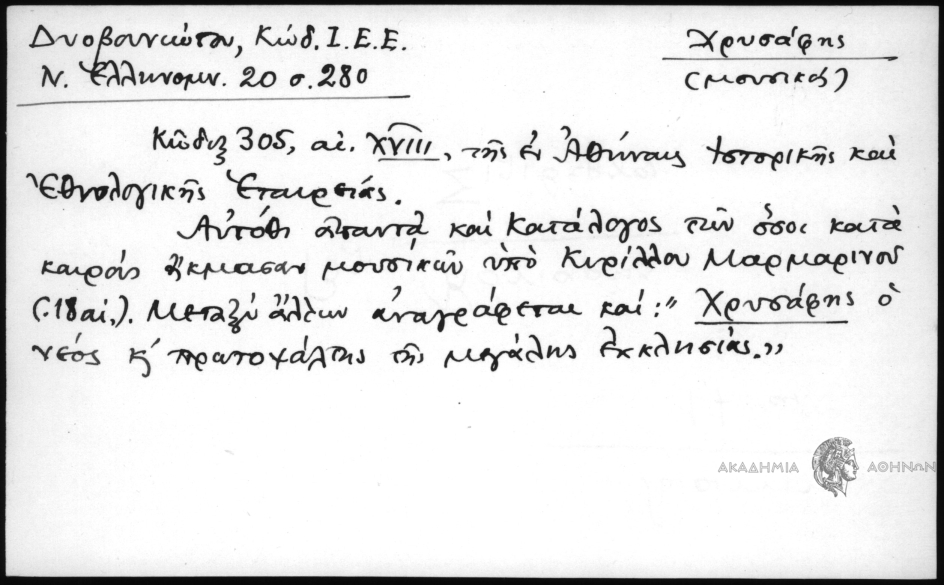 Δυοβουνιώτου, Κώδ. Ι.Ε.Ε.
Χρυσάφης
Ν. Ἑλληνομν. 20 σ. 280
(μουσικός)
Κῶδιξ 305, αἰ. XVIII, τῆς ἐν Ἀθήναις Ἱστορικῆς καὶ
Ἐθνολογικῆς Ἑταιρείας.
Αὐτόθι ἀπαντᾷ καὶ Κατάλογος τῶν ὅσοι κατὰ
καιροὺς ἤκμασαν μουσικῶν ὑπὸ Κυρίλλου Μαρμαρινοῦ
(18 αἰ.). Μεταξὺ ἄλλων ἀναγράφεται καί: " Χρυσάφης ὁ
νέος κ̓ πρωτοψάλτης τῆς μεγάλης ἐκκλησίας. "
ΑΚΑΔΗΜΙΑ ΑΘΗΝΩΝ